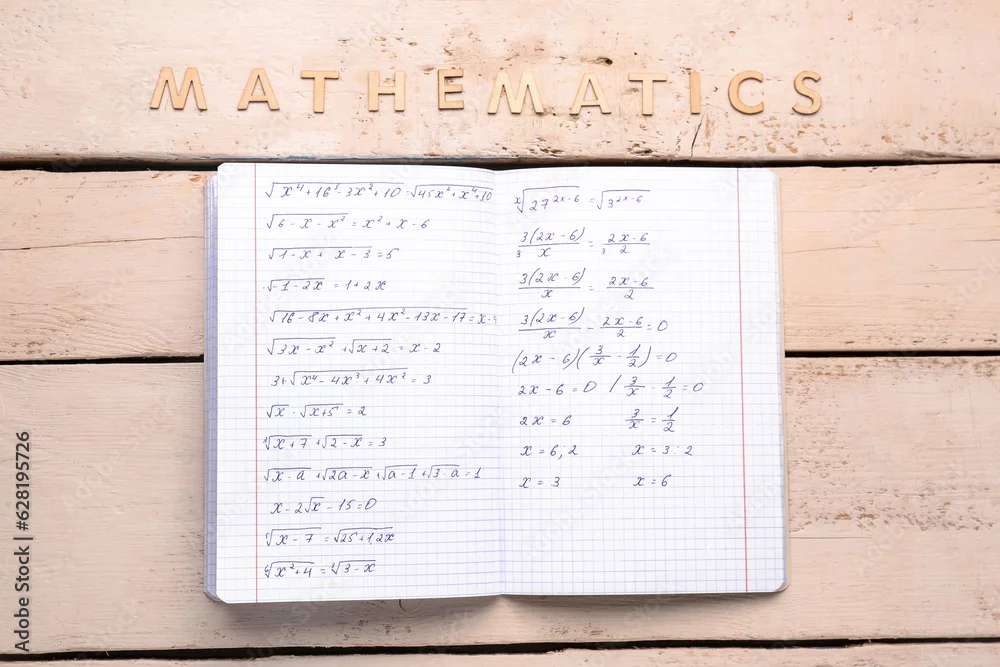 MATHEMATICS
√x⁴+16³-3x²+10 = √45x²+x⁴+10
√6-x-x² = x²+x-6
√1-x+x-3 = 5
√-1-2x = 1+2x
√16-8x+x²+4x²-13x-17 = x-4
√3x-x²+√x+2 = x-2
3+√x⁴-4x³+4x² = 3
√x-√x+5 = 2
√x+7+√2-x = 3
√x-a+√2a-x+√a-1+√3-a = 1
x-2√x-15=0
√x-7 = √25+1,2x
⁶√x²+4 = √3-x
ˣ√27²ˣ⁻⁶ = √3²ˣ⁻⁶
3 3(2x-6)/x = 3 2x-6/2
3(2x-6)/x = 2x-6/2
3(2x-6)/x - 2x-6/2 = 0
(2x-6)(3/x - 1/2) = 0
2x-6=0 / 3/x - 1/2 = 0
2x = 6 3/x = 1/2
x = 6;2 x = 3:2
x = 3 x = 6
Adobe Stock | #628195726
Adobe Stock